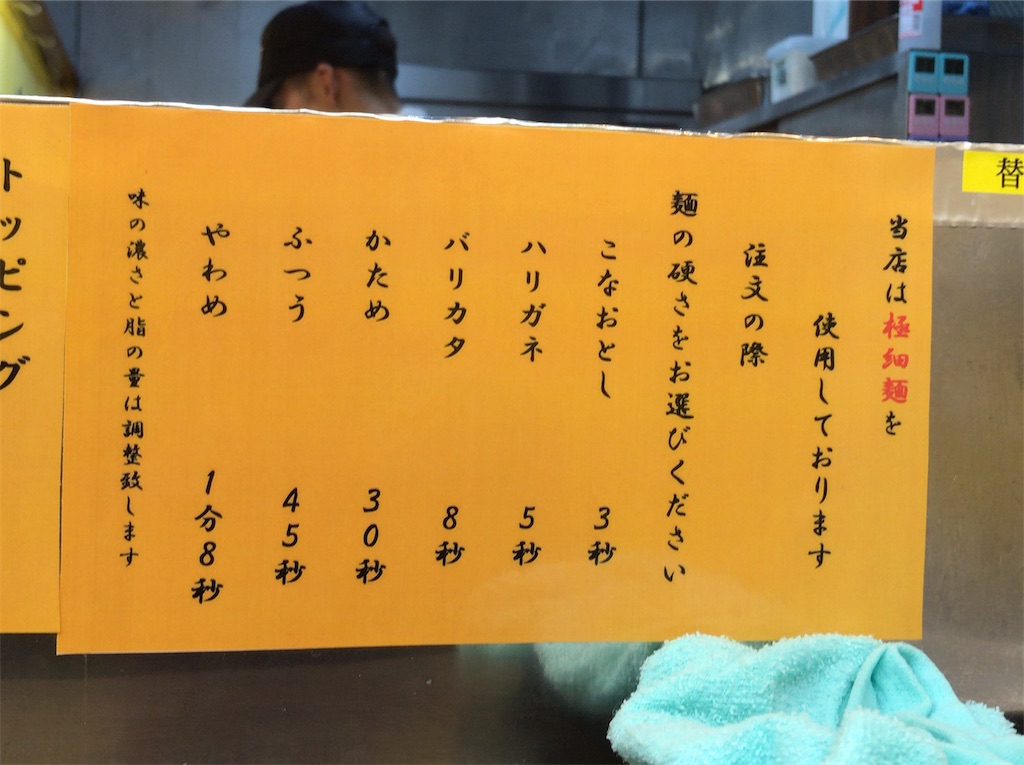 当店は極細麺を
使用しております
注文の際
麺の硬さをお選びください
こなおとし 3秒
ハリガネ 5秒
バリカタ 8秒
かため 30秒
ふつう 45秒
やわめ 1分8秒
味の濃さと脂の量は調整致します
トッピング
替